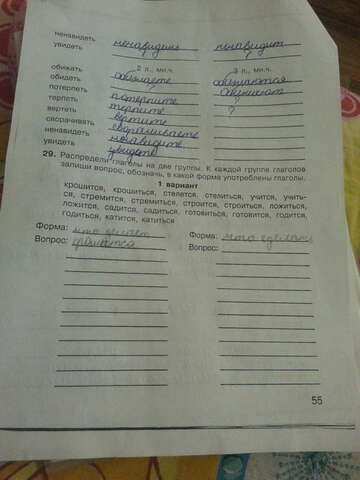 ненавидеть
увидеть ненавидишь ненавидит
? ?
2 л., мн.ч. 3 л., мн.ч.
обижать
обидеть обещаются
потерпеть потерпите
терпеть терпите ?
вертеть вертите
сворачивать сворачиваете
ненавидеть ненавидите
увидеть увидете
29. Распредели глаголы на две группы. К каждой группе глаголов
запиши вопрос, обозначь, в какой форме употреблены глаголы.
1 вариант
крошится, крошиться, стелется, стелиться, учится, учить-
ся, стремится, стремиться, строится, строиться, ложиться,
ложится, садится, садиться, готовиться, готовится, годится,
годиться, катится, катиться
Форма: что делает Форма: что сделать
Вопрос: крошится Вопрос:
55